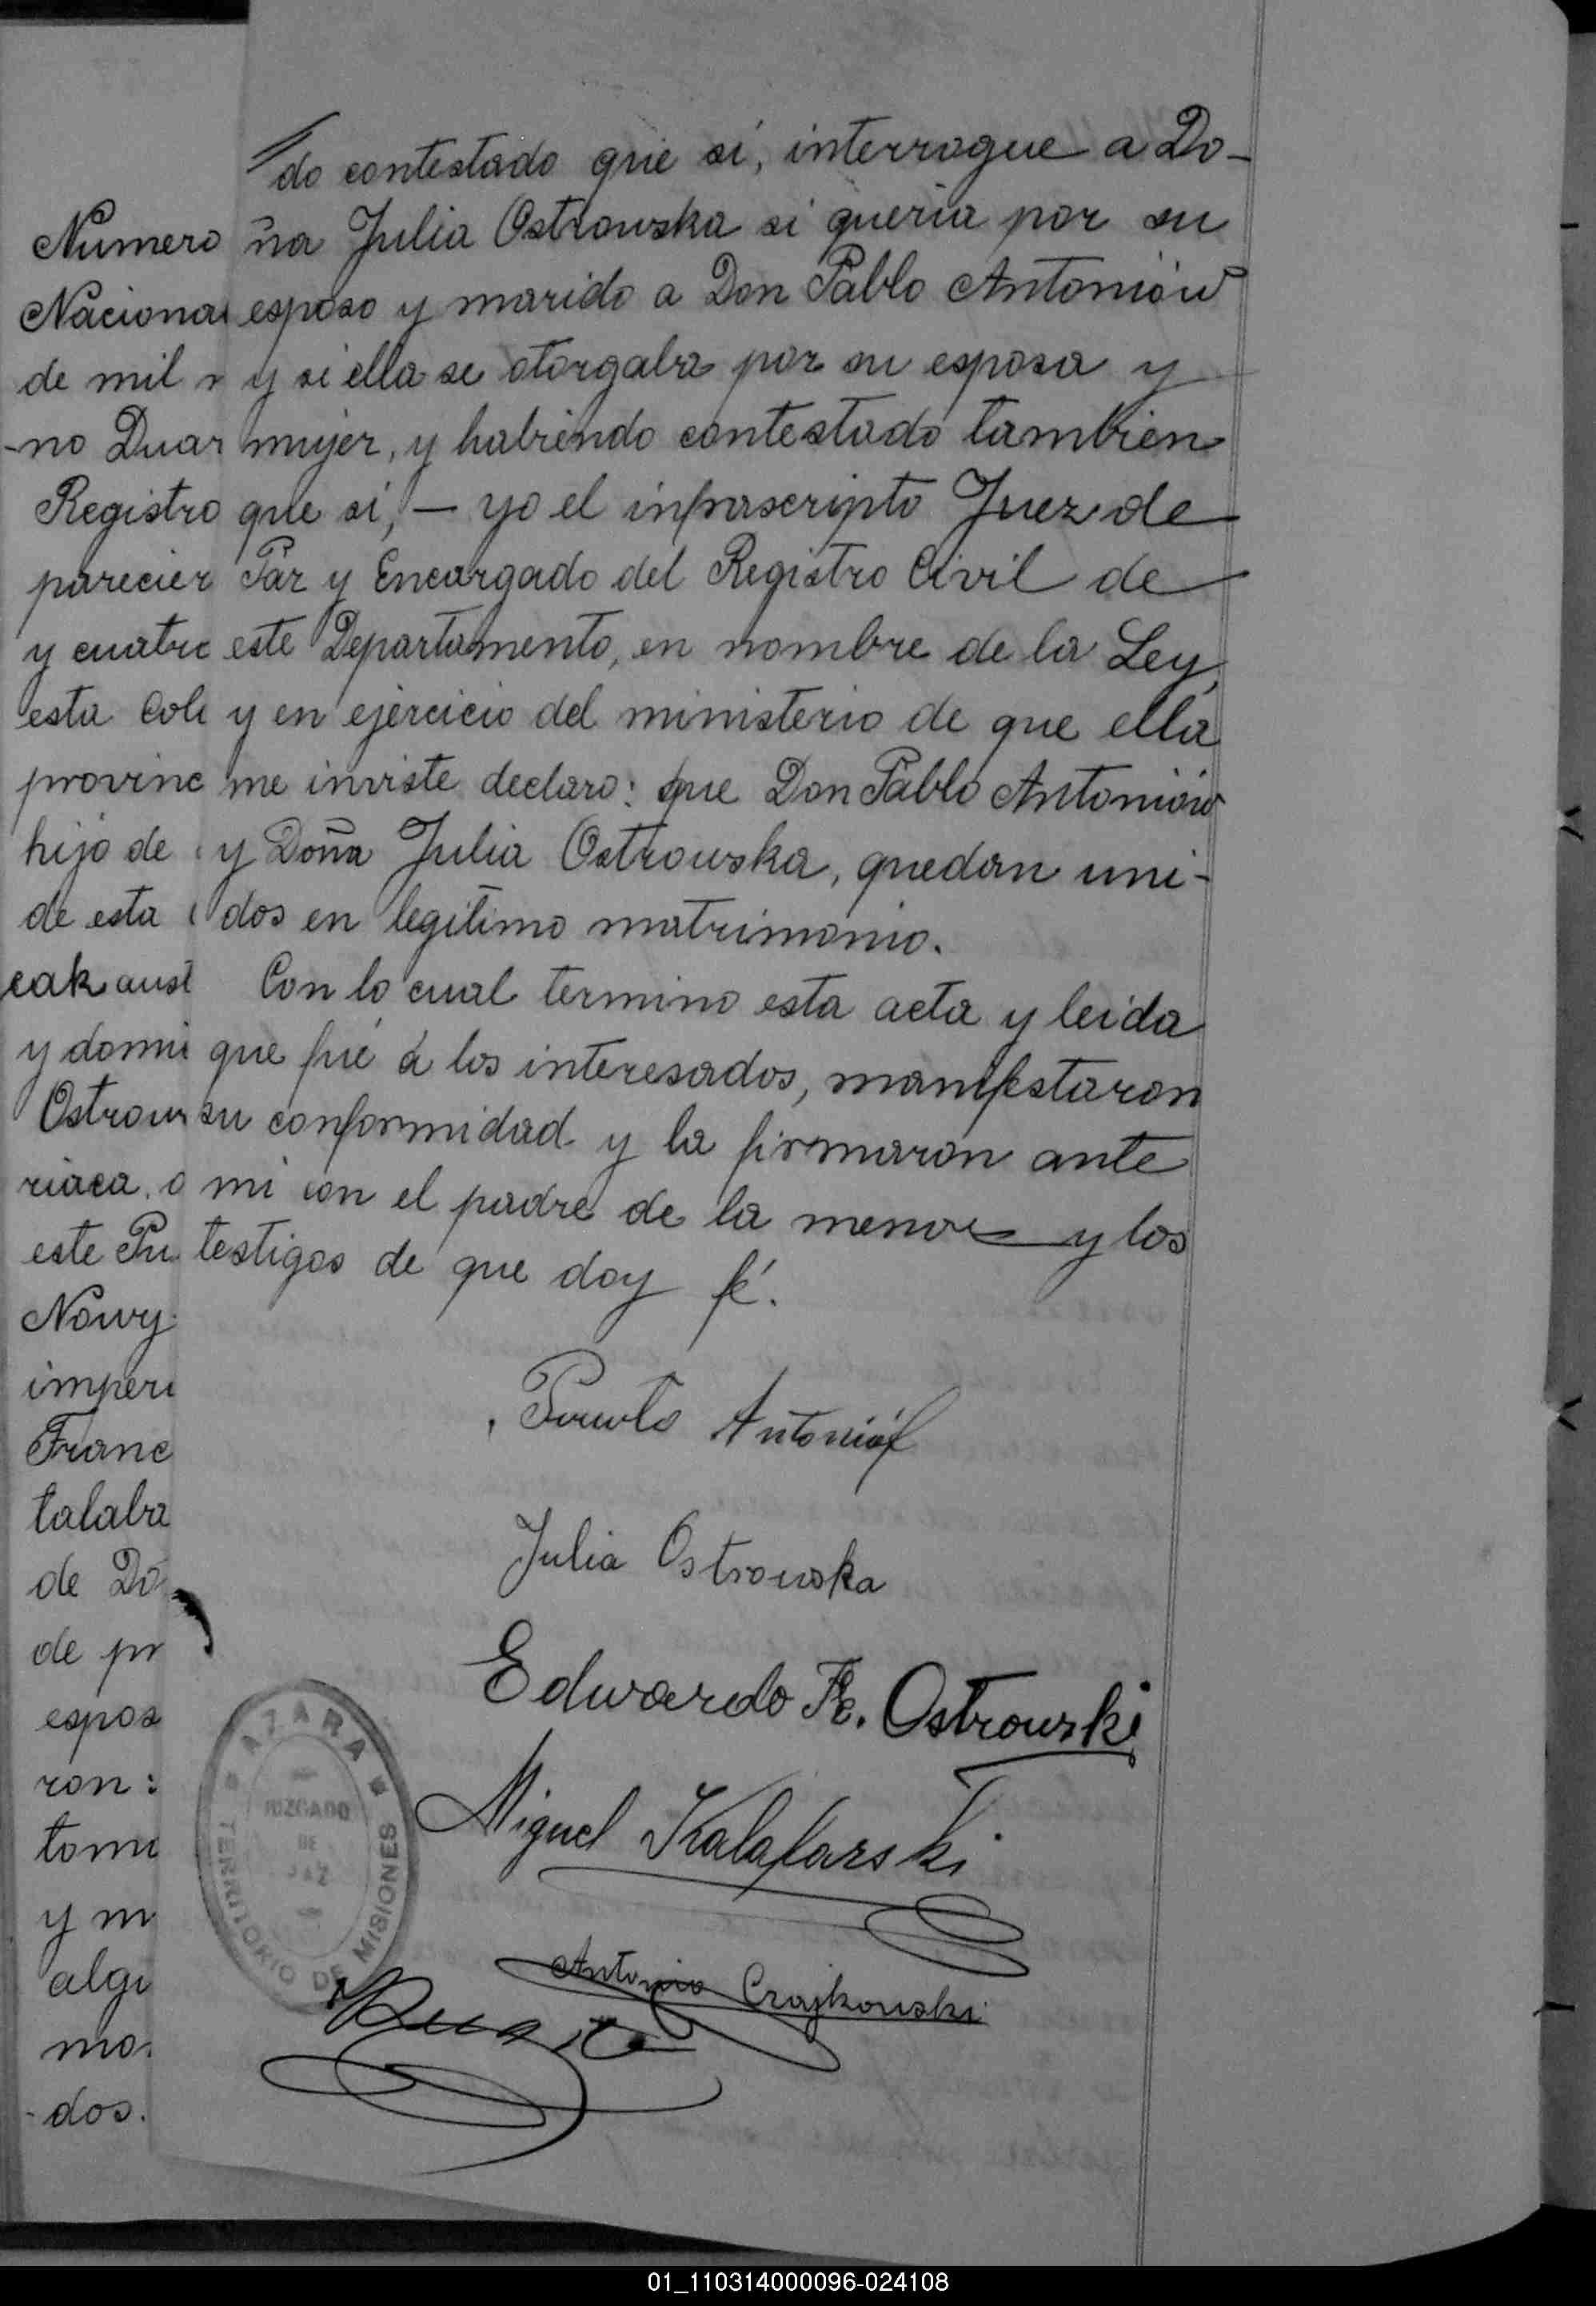 do contestado que sí, interrogue a Do-
ña Julia Ostrowska si queria por su
esposo y marido a Don Pablo Antoniów
y si ella se otorgaba por su esposa y
mujer, y habiendo contestado tambien
que sí, — yo el infrascripto Juez de
Paz y Encargado del Registro Civil de
este Departamento, en nombre de la Ley,
y en ejercicio del ministerio de que ella
me inviste declaro: que Don Pablo Antoniów
y Doña Julia Ostrowska, quedan uni-
dos en legitimo matrimonio.
Con lo cual termino esta acta y leida
que fué á los interesados, manifestaron
su conformidad y la firmaron ante
mi con el padre de la menor y los
testigos de que doy fé.
Julia Ostrowska
Edwardo Fr. Ostrowski
Miguel Kalafarski
Antonio Czajkowski
AZARA
JUZGADO
DE
PAZ
TERRITORIO DE MISIONES
Numero
Naciona
de mil
-no Duar
Registro
parecier
y cuatro
esta Col
provinc
hijo de
de esta
cak aust
y domi
Ostrow
riaca, o
este Pu
Nowy
imperi
Franc
talaba
de Do
de pr
espos
ron:
tomi
y m
algu
mo.
-dos.
01_110314000096-024108